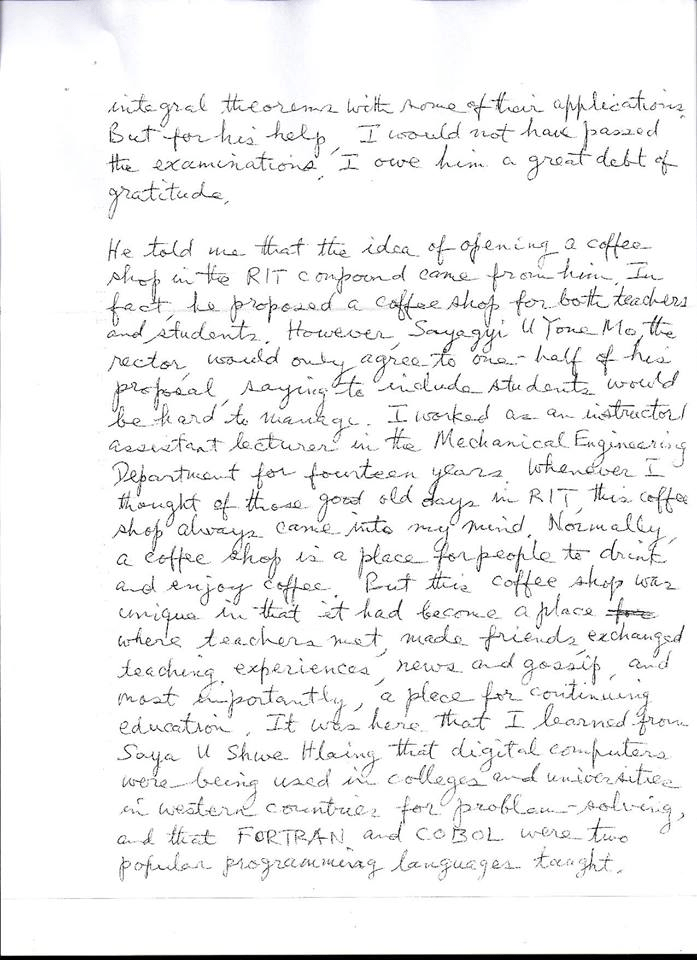 integral theorems with some of their applications.
But for his help, I would not have passed
the examinations. I owe him a great debt of
gratitude.
He told me that the idea of opening a coffee
shop in the RIT compound came from him. In
fact, he proposed a coffee shop for both teachers
and students. However, Sayagyi U Yone Mo, the
rector, would only agree to one-half of his
proposal, saying to include students would
be hard to manage. I worked as an instructor/
assistant lecturer in the Mechanical Engineering
Department for fourteen years. Whenever I
thought of those good old days in RIT, this coffee
shop always came into my mind. Normally,
a coffee shop is a place for people to drink
and enjoy coffee. But this coffee shop was
unique in that it had become a place for
where teachers met, made friends, exchanged
teaching experiences, news and gossip, and
most importantly, a place for continuing
education. It was here that I learned from
Saya U Shwe Hlaing that digital computers
were being used in colleges and universities
in western countries for problem-solving,
and that FORTRAN and COBOL were two
popular programming languages taught.